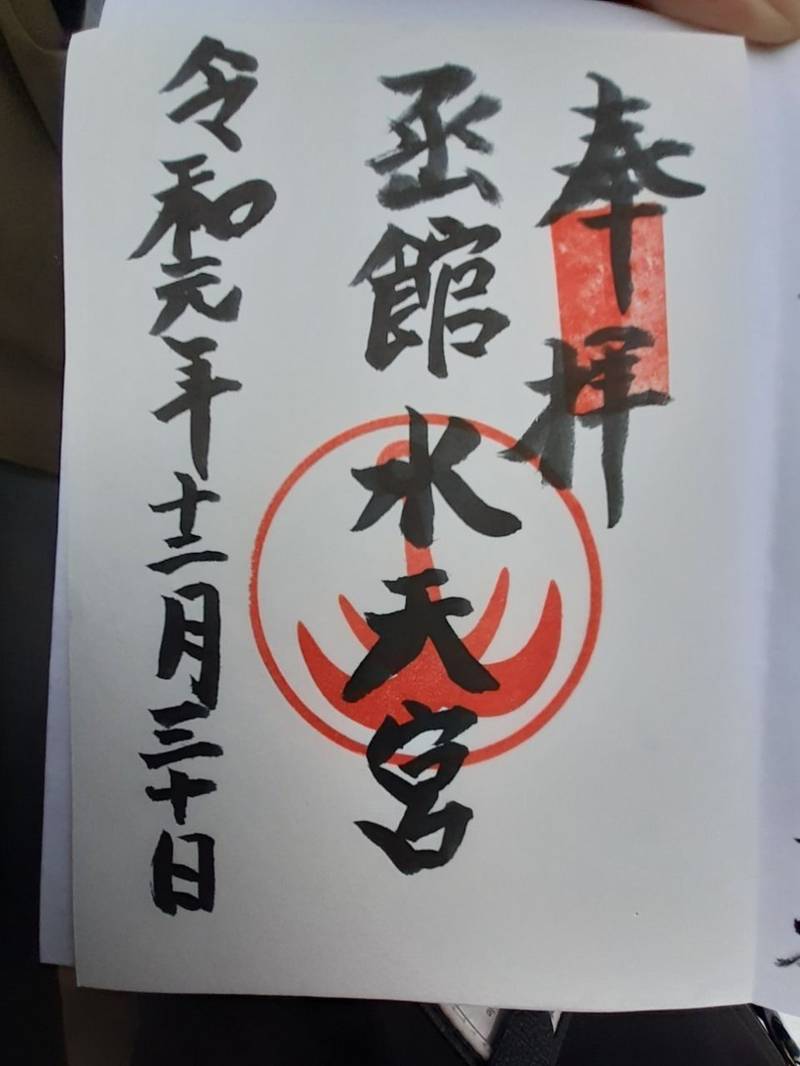 奉拝
函館水天宮
令和元年十二月三十日